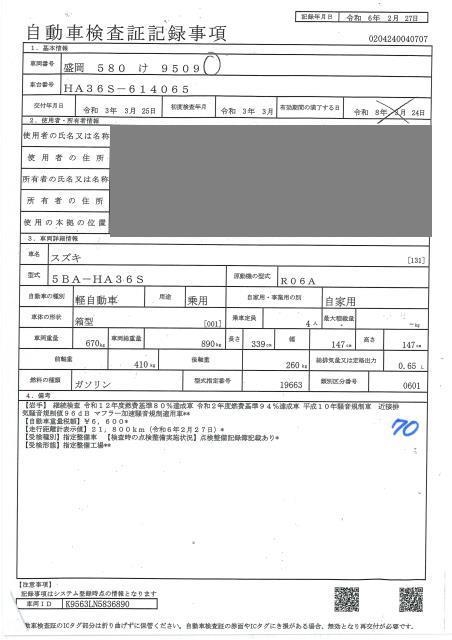 記録年月日 令和 6年 2月 27日
自動車検査証記録事項
0204240040707
1. 基本情報
車両番号 盛岡 580 け 9509
車台番号 HA36S-614065
交付年月日 令和 3年 3月 25日 初度検査年月 令和 3年 3月 有効期間の満了する日 令和 8年 3月 24日
2. 使用者・所有者情報
使用者の氏名又は名称
使用者の住所
所有者の氏名又は名称
所有者の住所
使用の本拠の位置
3. 車両詳細情報
車名 スズキ [131]
型式 5BA-HA36S 原動機の型式 R06A
自動車の種別 軽自動車 用途 乗用 自家用・事業用の別 自家用
車体の形状 箱型 [001] 乗車定員 4人 最大積載量 -kg
車両重量 670kg 車両総重量 890kg 長さ 339cm 幅 147cm 高さ 147cm
前軸重 410kg 後軸重 260kg 総排気量又は定格出力 0.65 L
燃料の種類 ガソリン 型式指定番号 19663 類別区分番号 0601
4. 備考
【岩手】 継続検査 令和12年度燃費基準80%達成車 令和2年度燃費基準94%達成車 平成10年騒音規制車 近接排
気騒音規制値96dB マフラー加速騒音規制適用車**
【自動車重量税額】¥6,600*
【走行距離計表示値】21,800km(令和6年2月27日)*
【受検種別】指定整備車 【検査時の点検整備実施状況】点検整備記録簿記載あり*
【受検形態】指定整備工場**
70
【注意事項】
記録事項はシステム登録時点の情報となります
車両ID K9563LN5836890
自動車検査証のICタグ部分は折り曲げずに保管ください。自動車検査証の券面やICタグにき損がある場合、無効となり再交付が必要です。